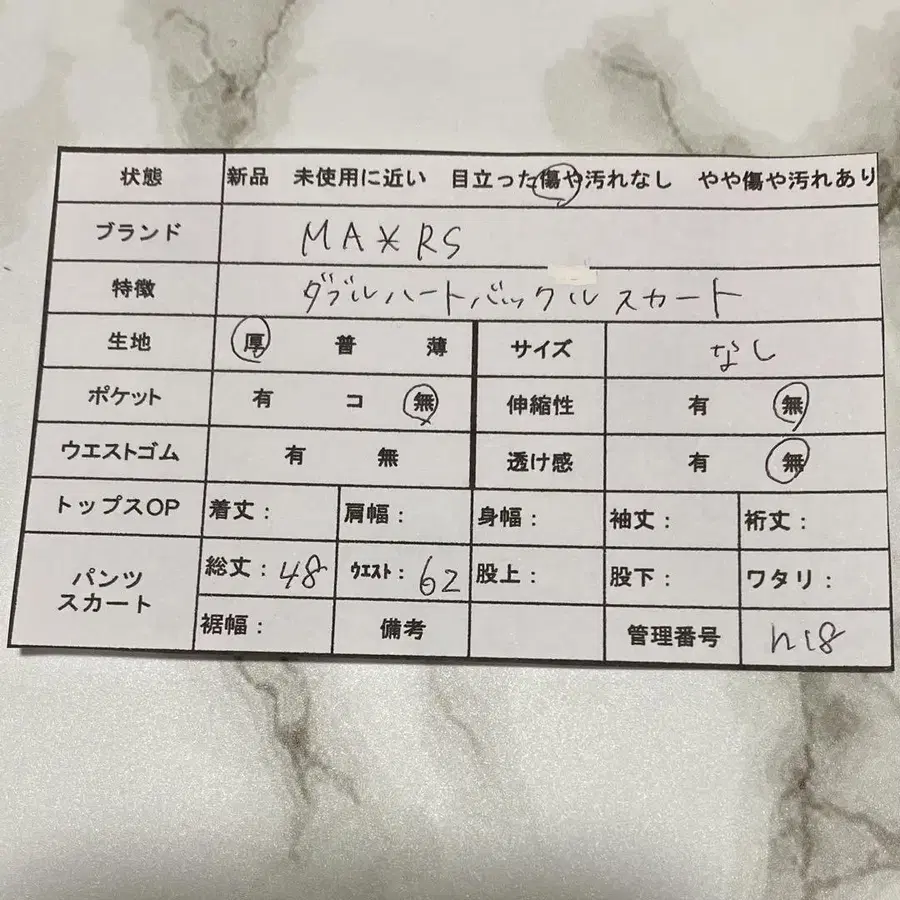 状態 新品 未使用に近い 目立った傷や汚れなし やや傷や汚れあり
ブランド MA*RS
特徴 ダブルハートバックルスカート
生地 厚 普 薄 サイズ なし
ポケット 有 コ 無 伸縮性 有 無
ウエストゴム 有 無 透け感 有 無
トップスOP 着丈: 肩幅: 身幅: 袖丈: 裄丈:
パンツ
スカート
総丈:48 ウエスト:62 股上: 股下: ワタリ:
裾幅: 備考 管理番号 h18